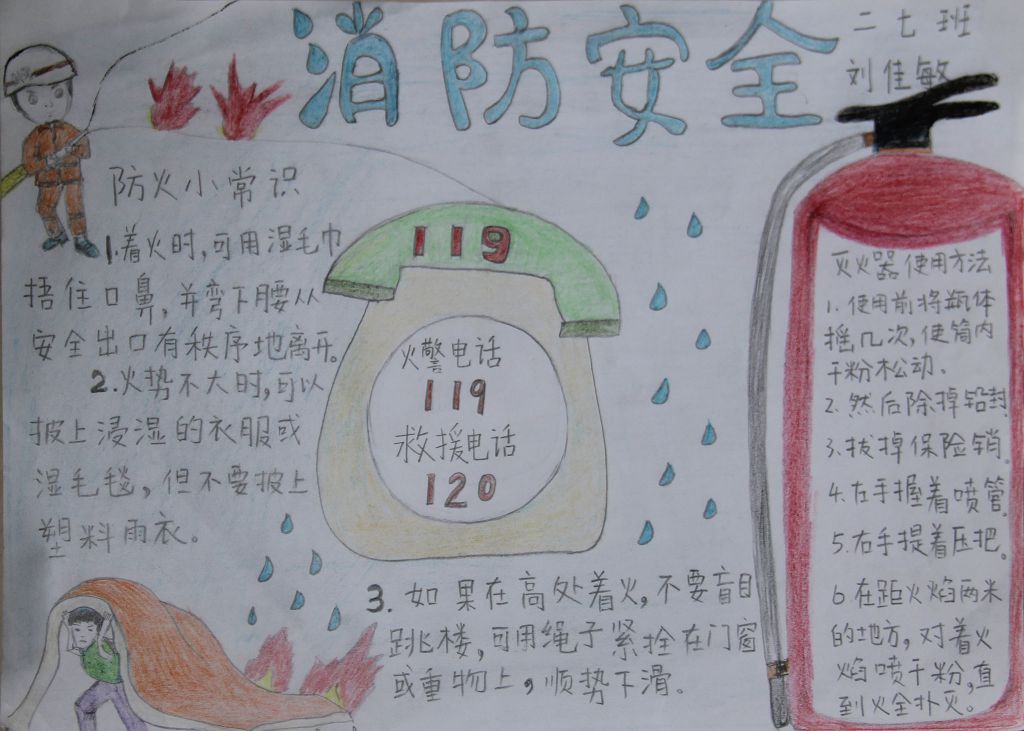 消防安全
二七班
刘佳敏
防火小常识
1.着火时,可用湿毛巾
捂住口鼻,并弯下腰从
安全出口有秩序地离开。
2.火势不大时,可以
披上浸湿的衣服或
湿毛毯,但不要披上
塑料雨衣。
119
火警电话
119
救援电话
120
3.如果在高处着火,不要盲目
跳楼,可用绳子紧拴在门窗
或重物上,顺势下滑。
灭火器使用方法
1.使用前将瓶体
摇几次,使筒内
干粉松动.
2.然后除掉铅封
3.拔掉保险销。
4.左手握着喷管。
5.右手提着压把。
6在距火焰两米
的地方,对着火
焰喷干粉,直
到火全扑灭。